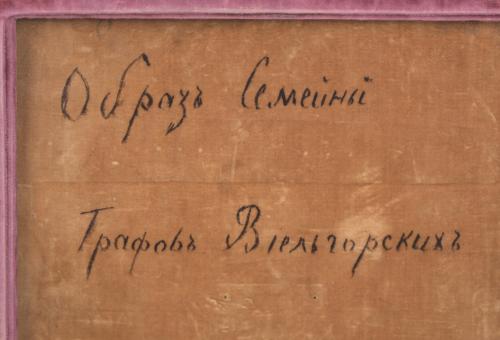 Образъ Семейный
Графовъ Віельгорскихъ